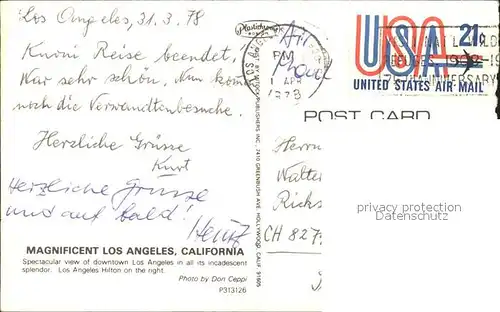 Los Angeles, 31.3.78
Kurori Reise beendet.
War sehr schön. Nun kom
noch die Verwandtenbesuche.
Herzliche Grüsse
Kurt
Herzliche Grüsse
und auf bald!
Heinz
MAGNIFICENT LOS ANGELES, CALIFORNIA
Spectacular view of downtown Los Angeles in all its incadescent
splendor. Los Angeles Hilton on the right.
Photo by Don Ceppi
P313126
Plastichrome
LOS ANGELES
PM
1 APR
1978
Air
MITCHOCK PUBLISHERS INC. 7410 GREENBUSH AVE. HOLLYWOOD, CALIF. 91605
USA 21c
ANNIVERSARY
UNITED STATES AIR MAIL
POST CARD
Herrn
Walter
Ricks
CH 827
privacy protection
Datenschutz